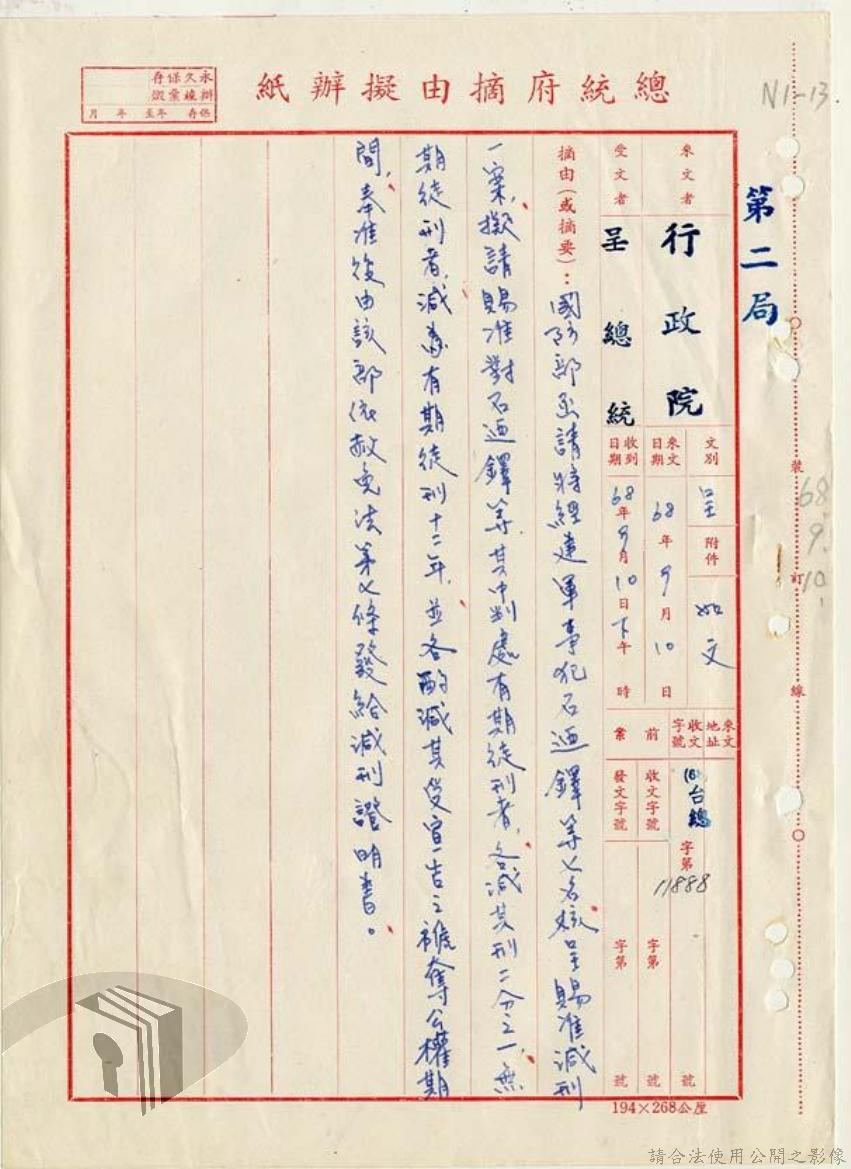 總統府摘由擬辦紙
永久保存
辦竣彙繳
保存 年至 年 月
N1-13
第二局
來文者
行政院
受文者
呈總統
文別
呈
附件
如文
來文日期
68年9月10日
收到日期
68年9月10日下午 時
來文地址
收文字號
(68)台總 字第 11888 號
前案
收文字號 字第 號
發文字號 字第 號
摘由(或摘要):國防部函請將經建軍事犯石迺鐸等七名核呈賜准減刑
一案,擬請賜准對石迺鐸等,其中判處有期徒刑者,各減其刑二分之一,無
期徒刑者,減為有期徒刑十二年,並各酌減其受宣告之褫奪公權期
間,奉准後由該部依赦免法第七條發給減刑證明書。
裝
訂
線
68.
9.
10.
194×268公厘
請合法使用公開之影像